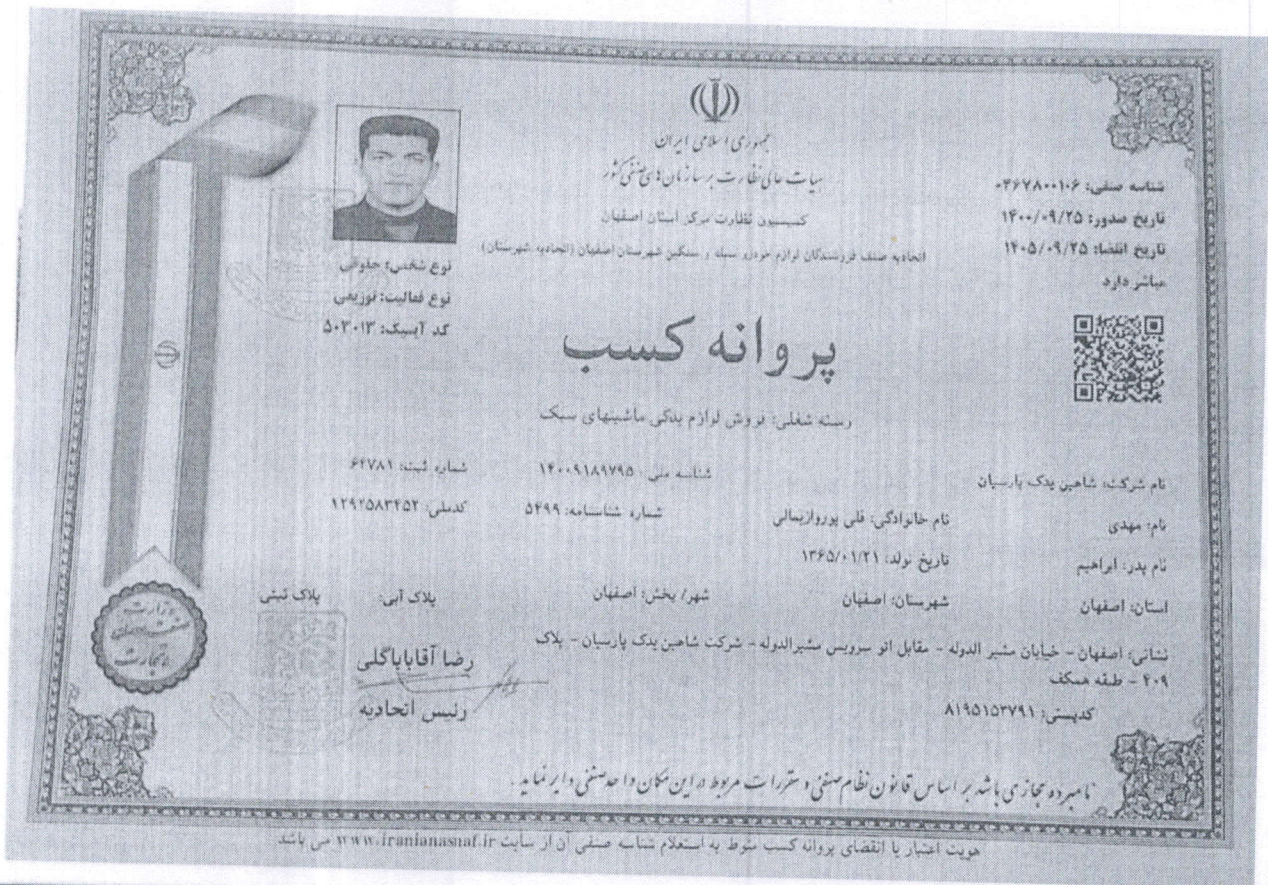 جمهوری اسلامی ایران
هیات عالی نظارت بر سازمان های صنفی کشور
کمیسیون نظارت مرکز استان اصفهان
اتحادیه صنف فروشندگان لوازم خودرو سبک و سنگین شهرستان اصفهان (اتحادیه شهرستان)
شناسه صنفی: ۰۴۶۷۸۰۰۱۰۶
تاریخ صدور: ۱۴۰۰/۰۹/۲۵
تاریخ انقضا: ۱۴۰۵/۰۹/۲۵
مباشر دارد
نوع شخص: حقوقی
نوع فعالیت: توزیعی
کد آیسیک: ۵۰۳۰۱۳
پروانه کسب
رسته شغلی: فروش لوازم یدکی ماشینهای سبک
نام شرکت: شاهین یدک پارسیان شناسه ملی: ۱۴۰۰۹۱۸۹۷۹۵ شماره ثبت: ۶۴۷۸۱
نام: مهدی نام خانوادگی: قلی پوروازیمالی شماره شناسنامه: ۵۴۹۹ کدملی: ۱۲۹۲۵۸۳۴۵۲
نام پدر: ابراهیم تاریخ تولد: ۱۳۶۵/۰۱/۲۱
استان: اصفهان شهرستان: اصفهان شهر/ بخش: اصفهان پلاک آبی: پلاک ثبتی
نشانی: اصفهان - خیابان مشیر الدوله - مقابل اتو سرویس مشیرالدوله - شرکت شاهین یدک پارسیان - پلاک
۲۰۹ - طبقه همکف
کدپستی: ۸۱۹۵۱۵۳۷۹۱
رضا آقاباباگلی
رئیس اتحادیه
نامبرده مجازی باشد بر اساس قانون نظام صنفی و مقررات مربوط در این مکان واحد صنفی دایر نماید .
هویت اعتبار یا انقضای پروانه کسب منوط به استعلام شناسه صنفی آن از سایت www.iranianasnaf.ir می باشد